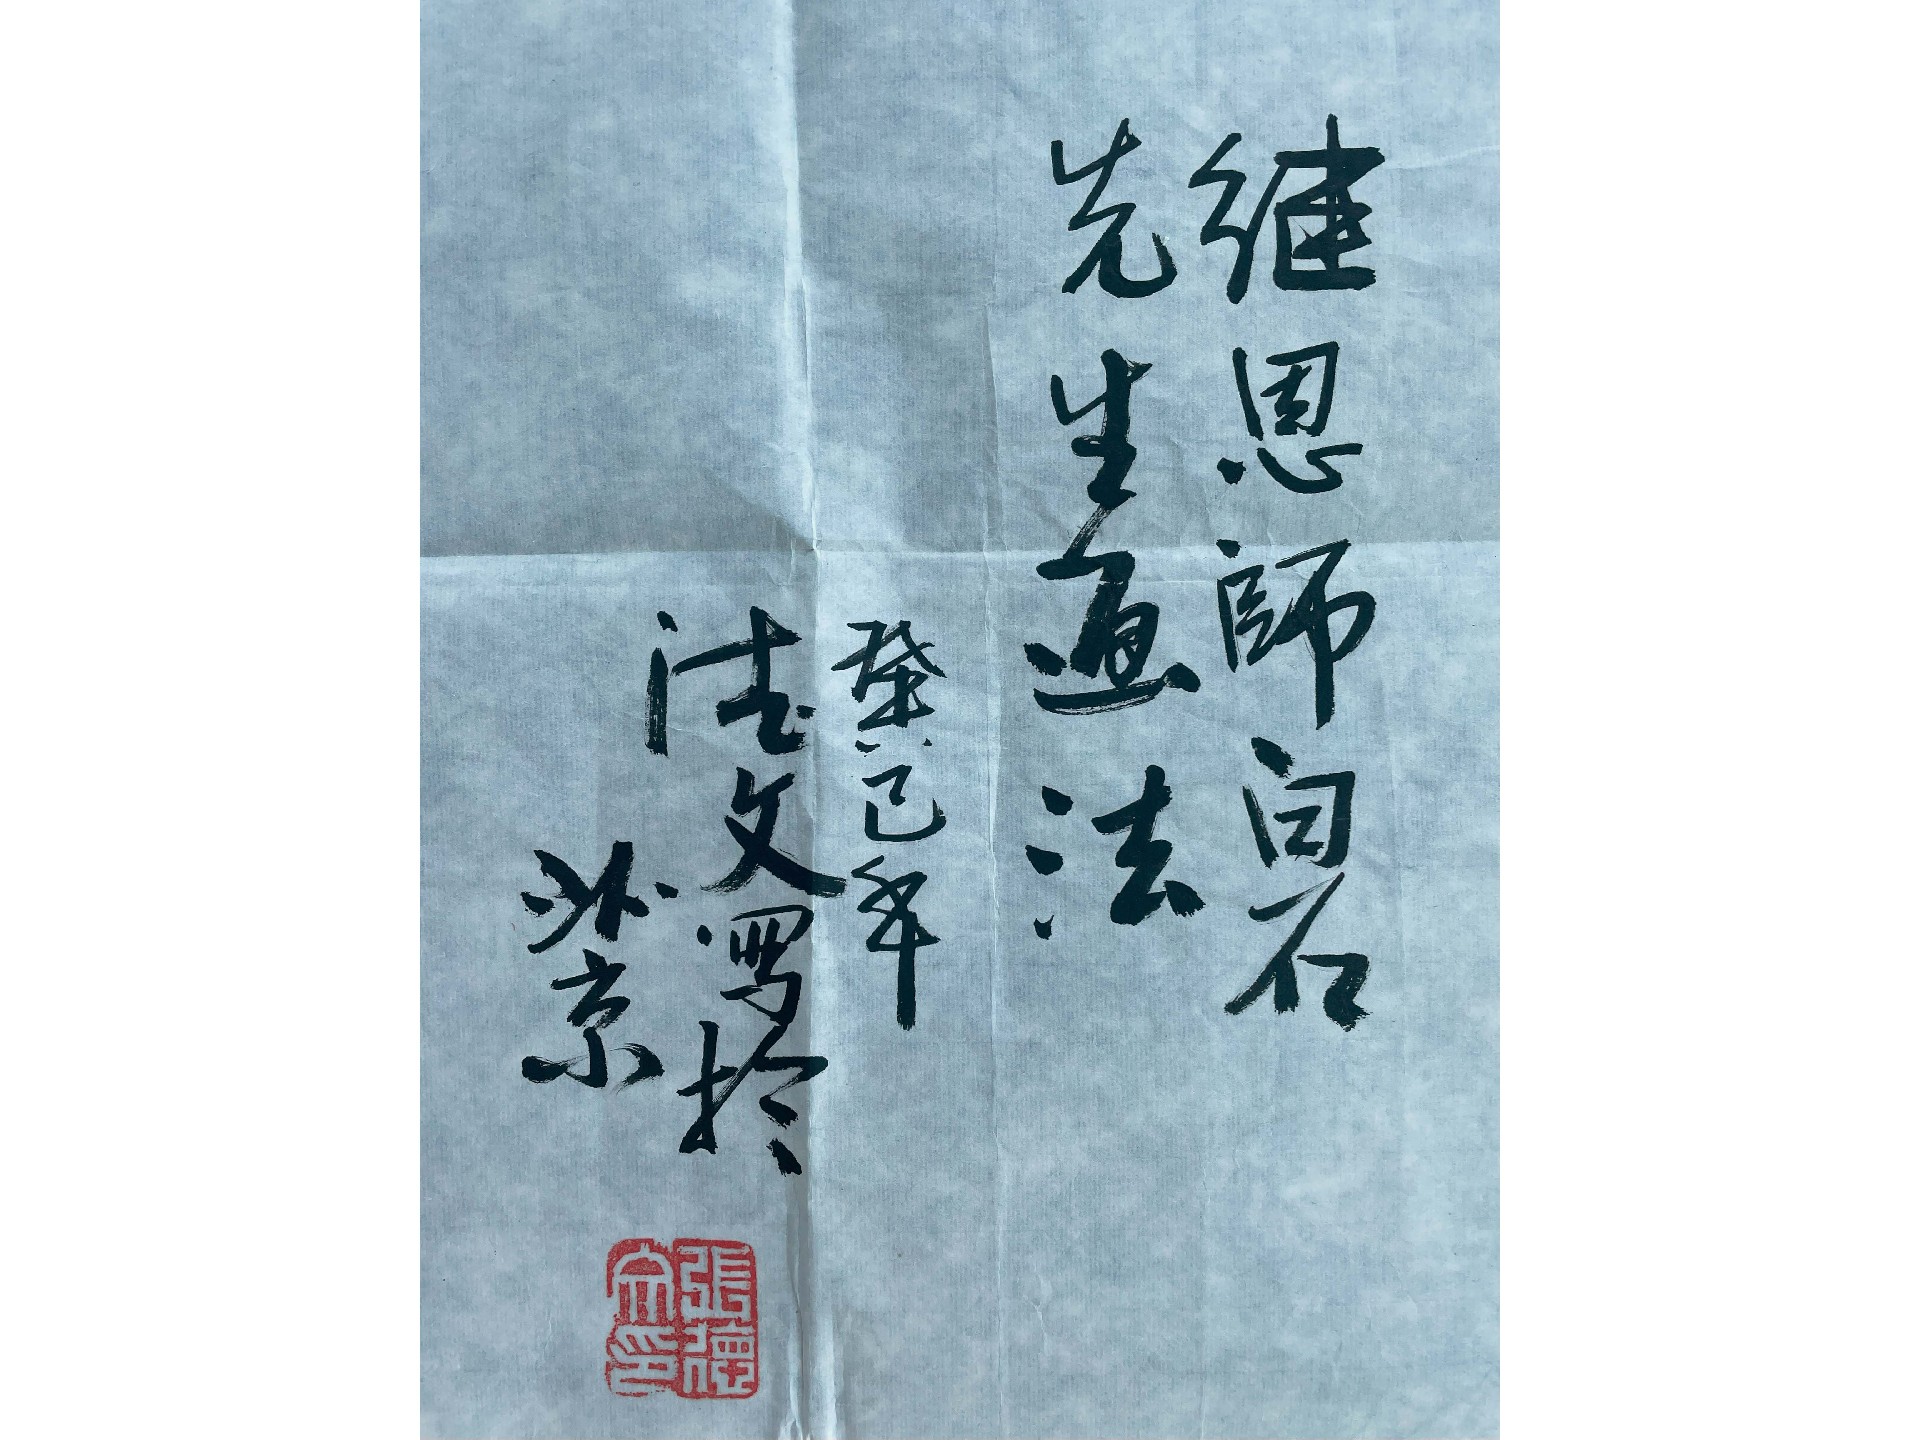 继恩師白石
先生画法
癸巳年
德文写於
北京
張德
文印